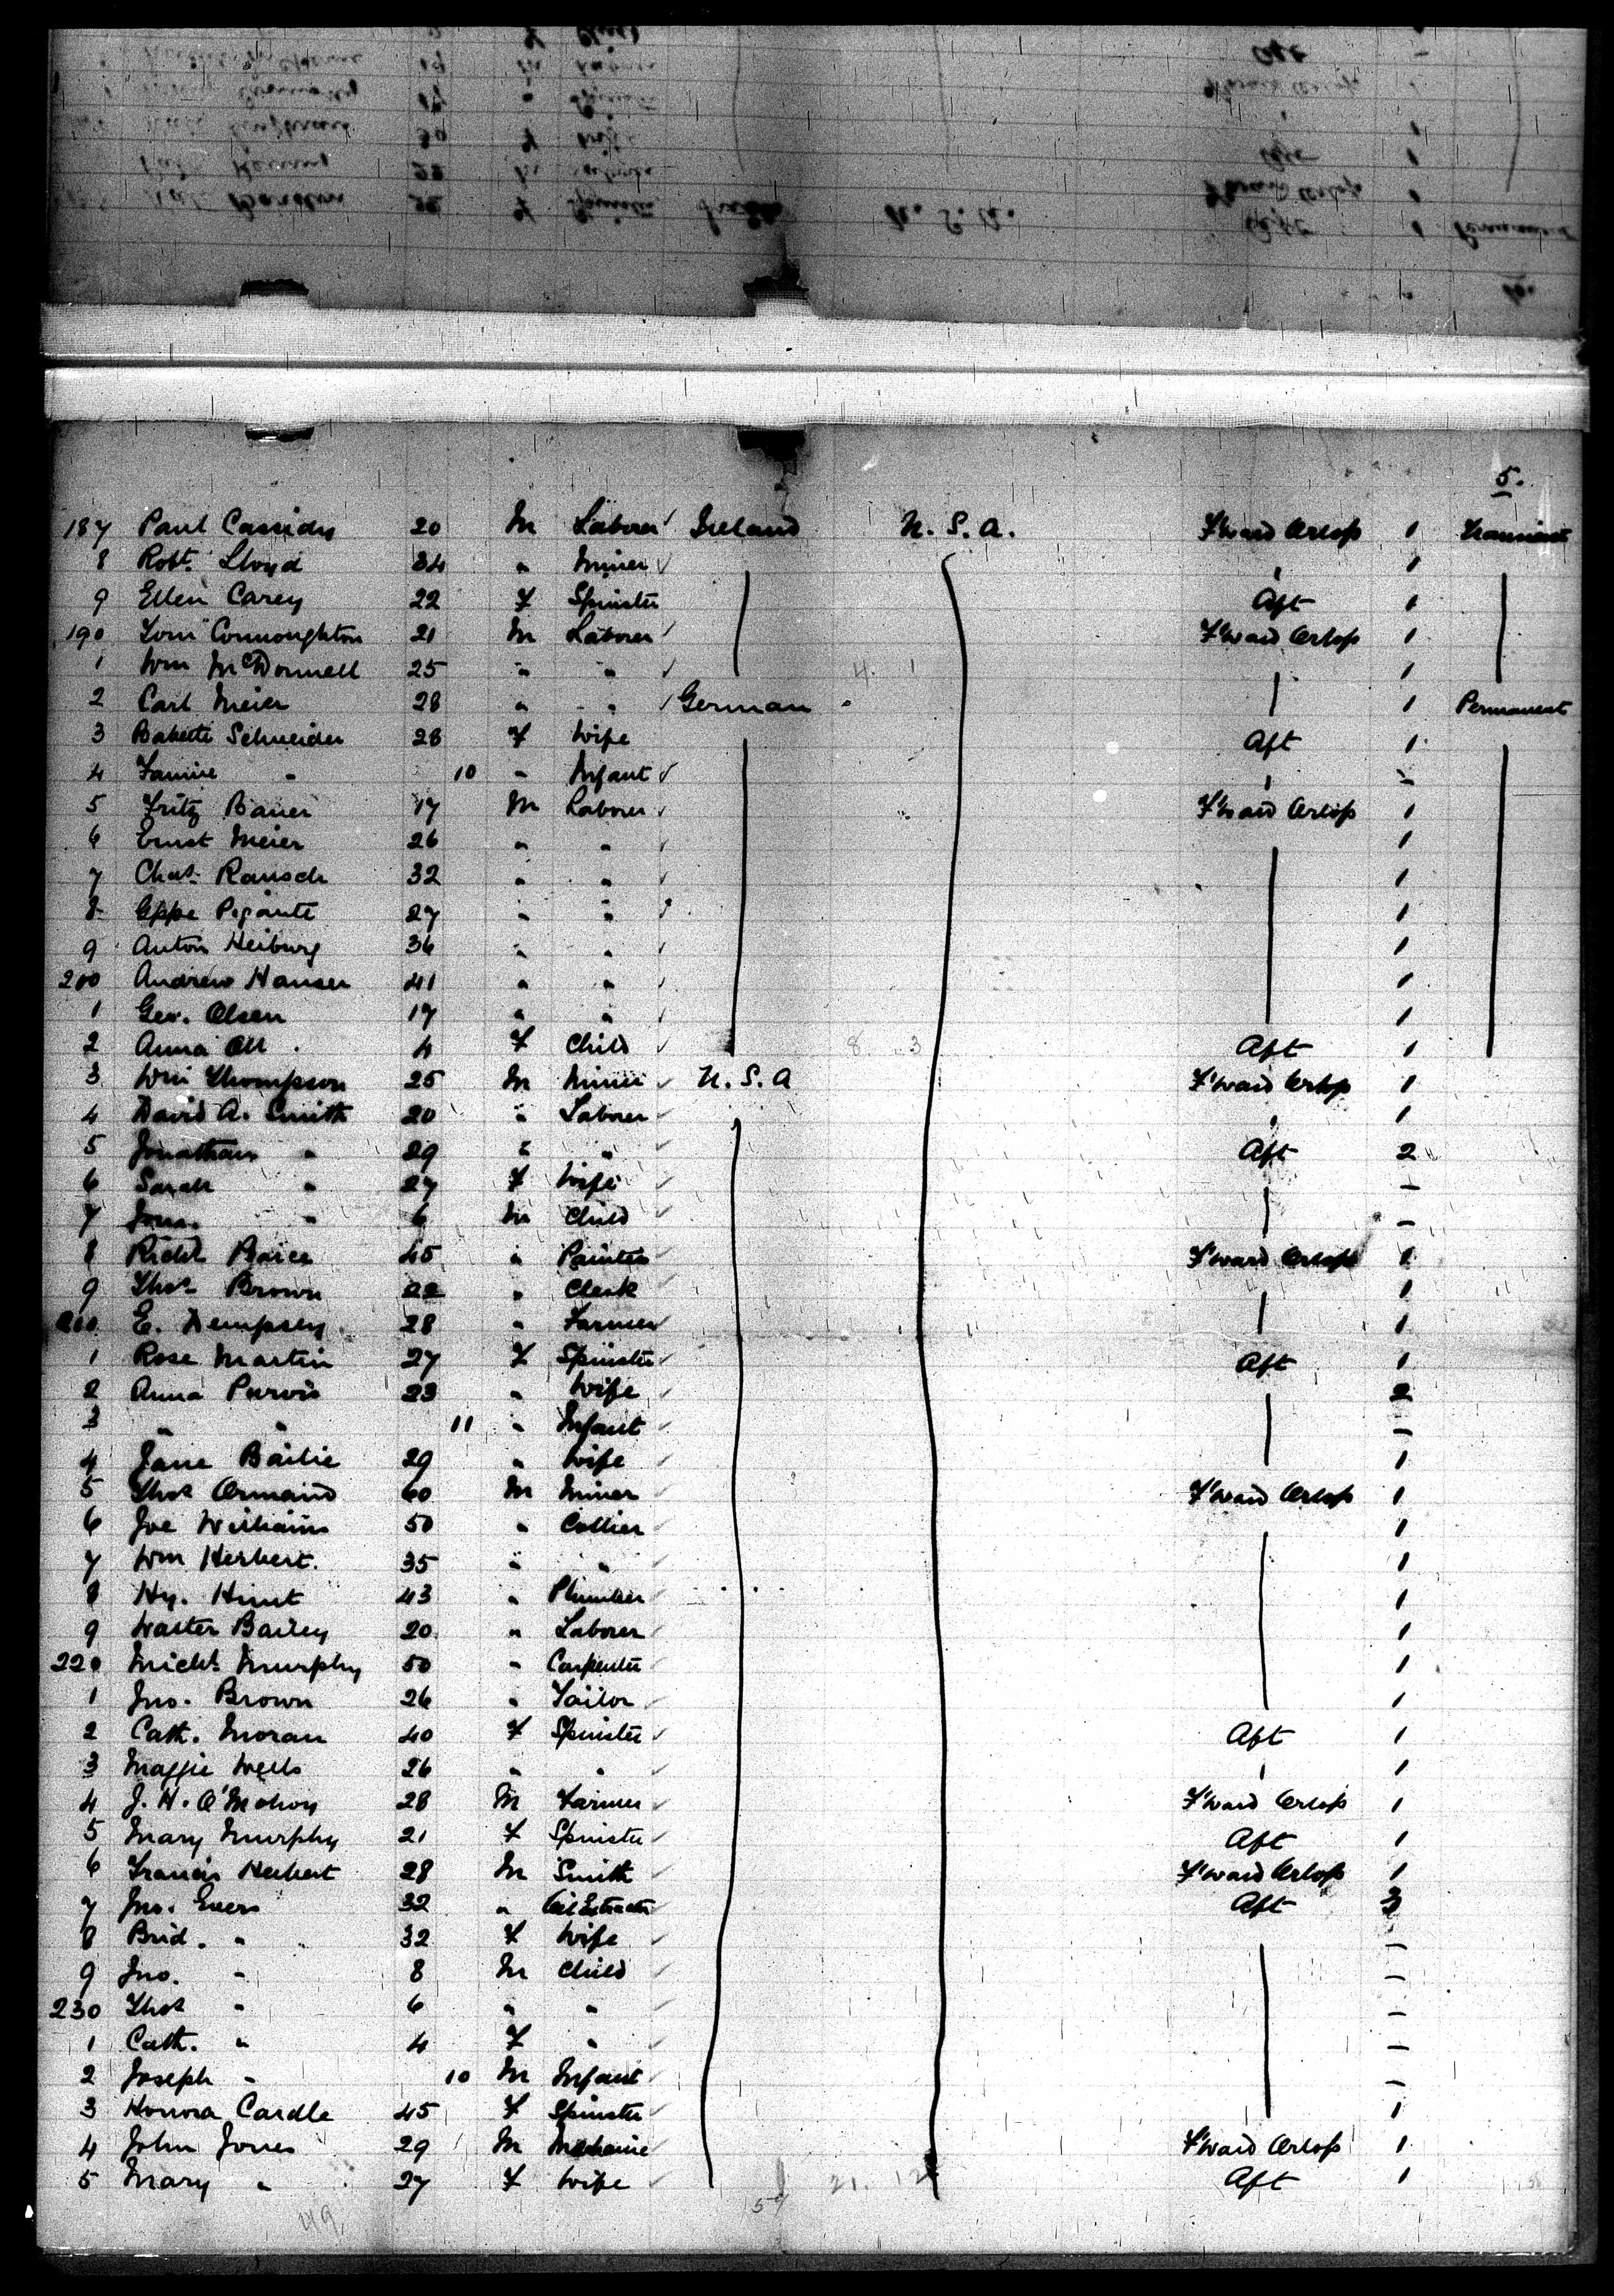 5.
187 Paul Cassidy 20 M Laborer Ireland U. S. A. F'ward Orlop 1 Transient
8 Robt. Lloyd 34 " Miner " 1
9 Ellen Carey 22 F Spinster Aft 1
190 Tom Connoughton 21 M Laborer F'ward Orlop 1
1 Wm McDonnell 25 " " 1
2 Carl Meier 28 " " German 1 Permanent
3 Babette Schneider 28 F Wife Aft 1
4 Fannie " 10 " Infant " -
5 Fritz Bauer 17 M Laborer F'ward Orlop 1
6 Ernst Meier 26 " " 1
7 Chas. Rausch 32 " " 1
8 Gppe Pigante 27 " " 1
9 Anton Heiburg 36 " " 1
200 Andrew Hansen 41 " " 1
1 Geo. Olsen 17 " " 1
2 Anna Ott 4 F Child Aft 1
3 Wm Thompson 25 M Miner U. S. A F'ward Orlop 1
4 David A. Smith 20 " Laborer " 1
5 Jonathan " 29 " " Aft 2
6 Sarah " 27 F Wife -
7 Jona. " 6 M Child -
8 Richd 45 " Painter F'ward Orlop 1
9 Thos. Brown 22 " Clerk 1
210 E. Dempsey 28 " Farmer 1
1 Rose Martin 27 F Spinster Aft 1
2 Anna Purvis 23 " Wife 2
3 " " 11 " Infant -
4 Jane Bailie 29 " Wife 1
5 Thos Ormand 60 M Miner F'ward Orlop 1
6 Joe Williams 50 " Collier 1
7 Wm Herbert. 35 " " 1
8 Hy. Hunt 43 " Plumber 1
9 Walter Bailey 20 " Laborer 1
220 Michl. Murphy 50 " Carpenter 1
1 Jno. Brown 26 " Tailor 1
2 Cath. Moran 40 F Spinster Aft 1
3 Maggie Wells 26 " " " 1
4 J. H. O'Mahony 28 M Farmer F'ward Orlop 1
5 Mary Murphy 21 F Spinster Aft 1
6 Francis Herbert 28 M Smith F'ward Orlop 1
7 Jno. Evers 32 " Aft 3
8 Brid. " 32 F Wife -
9 Jno. " 8 M Child -
230 Thos " 6 " " -
1 Cath. " 4 F " -
2 Joseph " 10 M Infant -
3 Honora Cardle 45 F Spinster 1
4 John Jones 29 M Mechanic F'ward Orlop 1
5 Mary " 27 F Wife Aft 1